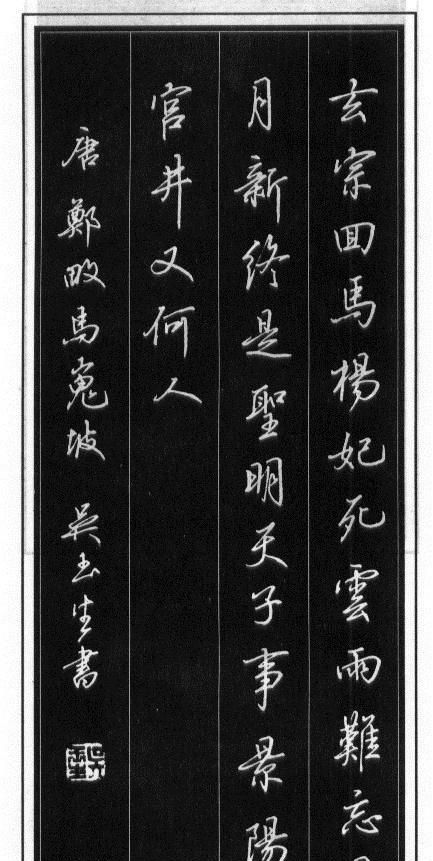 玄宗回馬楊妃死雲雨難忘
月新終是聖明天子事景陽
宮井又何人
唐鄭畋馬嵬坡 吳玉生書